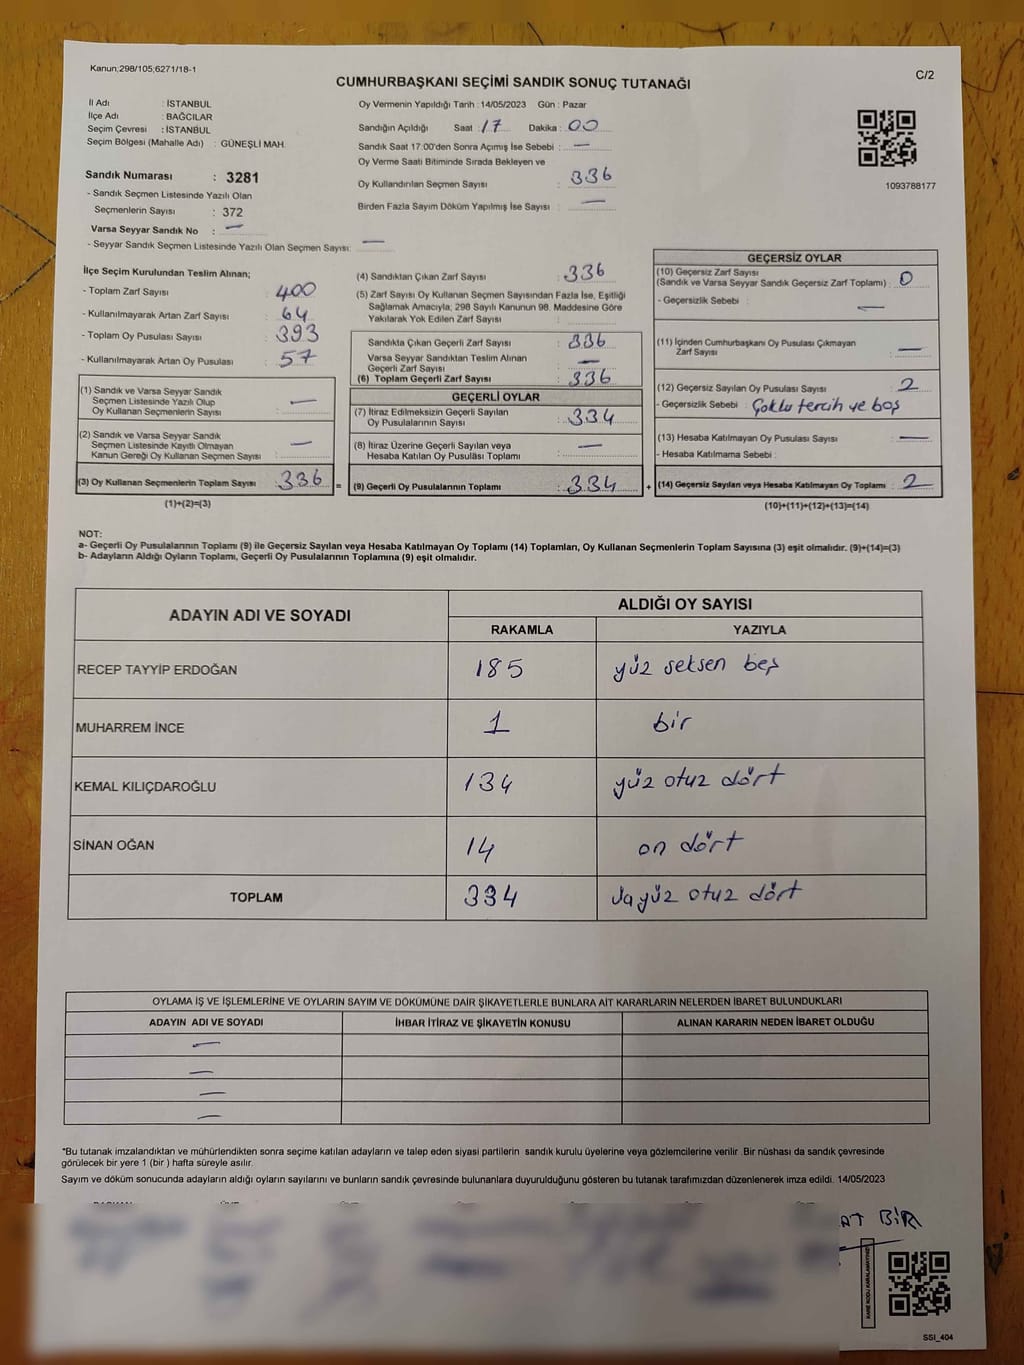 Kanun;298/105;6271/18-1
C/2
CUMHURBAŞKANI SEÇİMİ SANDIK SONUÇ TUTANAĞI
İl Adı : İSTANBUL
İlçe Adı : BAĞCILAR
Seçim Çevresi : İSTANBUL
Seçim Bölgesi (Mahalle Adı) : GÜNEŞLİ MAH.
Sandık Numarası : 3281
- Sandık Seçmen Listesinde Yazılı Olan
Seçmenlerin Sayısı : 372
Varsa Seyyar Sandık No : —
- Seyyar Sandık Seçmen Listesinde Yazılı Olan Seçmen Sayısı: —
Oy Vermenin Yapıldığı Tarih : 14/05/2023 Gün : Pazar
Sandığın Açıldığı Saat : 17 Dakika : 00
Sandık Saat 17:00'den Sonra Açımış İse Sebebi : —
Oy Verme Saati Bitiminde Sırada Bekleyen ve
Oy Kullandırılan Seçmen Sayısı : 336
Birden Fazla Sayım Döküm Yapılmış İse Sayısı : —
1093788177
İlçe Seçim Kurulundan Teslim Alınan;
- Toplam Zarf Sayısı : 400
- Kullanılmayarak Artan Zarf Sayısı : 64
- Toplam Oy Pusulası Sayısı : 393
- Kullanılmayarak Artan Oy Pusulası : 57
(1) Sandık ve Varsa Seyyar Sandık
Seçmen Listesinde Yazılı Olup
Oy Kullanan Seçmenlerin Sayısı : —
(2) Sandık ve Varsa Seyyar Sandık
Seçmen Listesinde Kayıtlı Olmayan
Kanun Gereği Oy Kullanan Seçmen Sayısı : —
(3) Oy Kullanan Seçmenlerin Toplam Sayısı : 336 =
(1)+(2)=(3)
(4) Sandıktan Çıkan Zarf Sayısı : 336
(5) Zarf Sayısı Oy Kullanan Seçmen Sayısından Fazla İse, Eşitliği
Sağlamak Amacıyla, 298 Sayılı Kanunun 98. Maddesine Göre
Yakılarak Yok Edilen Zarf Sayısı :
Sandıkta Çıkan Geçerli Zarf Sayısı : 336
Varsa Seyyar Sandıktan Teslim Alınan
Geçerli Zarf Sayısı : —
(6) Toplam Geçerli Zarf Sayısı : 336
GEÇERLİ OYLAR
(7) İtiraz Edilmeksizin Geçerli Sayılan
Oy Pusulalarının Sayısı : 334
(8) İtiraz Üzerine Geçerli Sayılan veya
Hesaba Katılan Oy Pusulası Toplamı : —
(9) Geçerli Oy Pusulalarının Toplamı : 334 +
GEÇERSİZ OYLAR
(10) Geçersiz Zarf Sayısı
(Sandık ve Varsa Seyyar Sandık Geçersiz Zarf Toplamı) : 0
- Geçersizlik Sebebi : —
(11) İçinden Cumhurbaşkanı Oy Pusulası Çıkmayan
Zarf Sayısı : —
(12) Geçersiz Sayılan Oy Pusulası Sayısı : 2
- Geçersizlik Sebebi : Çoklu tercih ve boş
(13) Hesaba Katılmayan Oy Pusulası Sayısı : —
- Hesaba Katılmama Sebebi :
(14) Geçersiz Sayılan veya Hesaba Katılmayan Oy Toplamı : 2
(10)+(11)+(12)+(13)=(14)
NOT:
a- Geçerli Oy Pusulalarının Toplamı (9) ile Geçersiz Sayılan veya Hesaba Katılmayan Oy Toplamı (14) Toplamları, Oy Kullanan Seçmenlerin Toplam Sayısına (3) eşit olmalıdır. (9)+(14)=(3)
b- Adayların Aldığı Oyların Toplamı, Geçerli Oy Pusulalarının Toplamına (9) eşit olmalıdır.
ADAYIN ADI VE SOYADI
ALDIĞI OY SAYISI
RAKAMLA YAZIYLA
RECEP TAYYİP ERDOĞAN 185 yüz seksen beş
MUHARREM İNCE 1 bir
KEMAL KILIÇDAROĞLU 134 yüz otuz dört
SİNAN OĞAN 14 on dört
TOPLAM 334 üçyüz otuz dört
OYLAMA İŞ VE İŞLEMLERİNE VE OYLARIN SAYIM VE DÖKÜMÜNE DAİR ŞİKAYETLERLE BUNLARA AİT KARARLARIN NELERDEN İBARET BULUNDUKLARI
ADAYIN ADI VE SOYADI İHBAR İTİRAZ VE ŞİKAYETİN KONUSU ALINAN KARARIN NEDEN İBARET OLDUĞU
—
—
—
—
*Bu tutanak imzalandıktan ve mühürlendikten sonra seçime katılan adayların ve talep eden siyasi partilerin sandık kurulu üyelerine veya gözlemcilerine verilir. Bir nüshası da sandık çevresinde
görülecek bir yere 1 (bir ) hafta süreyle asılır.
Sayım ve döküm sonucunda adayların aldığı oyların sayılarını ve bunların sandık çevresinde bulunanlara duyurulduğunu gösteren bu tutanak tarafımızdan düzenlenerek imza edildi. 14/05/2023
AT BİR
KARE KODU KARALAMAYINIZ
SSI_404